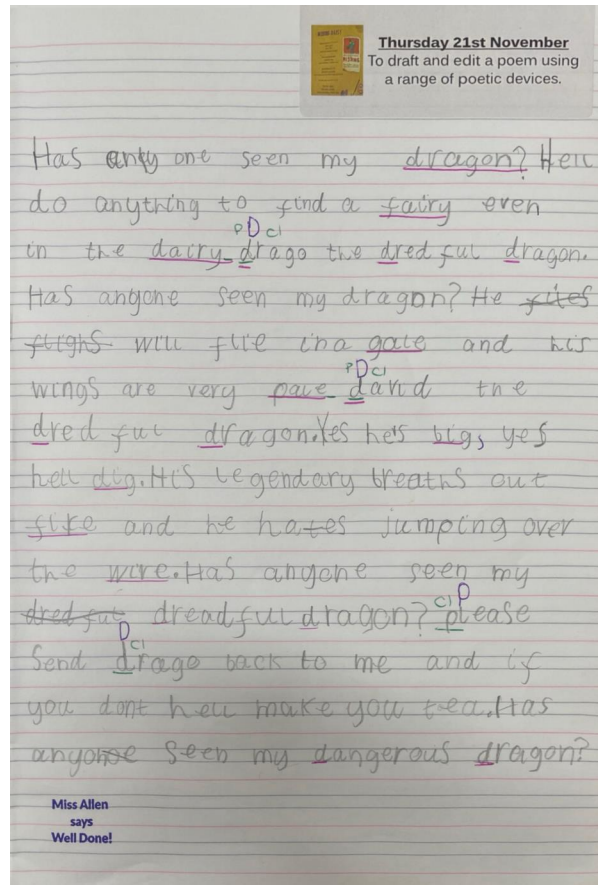 Thursday 21st November
To draft and edit a poem using
a range of poetic devices.
Has anty one seen my dragon? Hell
do anything to find a fairy even
P D Cl
in the dairy drago the dred ful dragon.
Has angone seen my dragon? He flies
flighs will flie in a gale and his
P D Cl
wings are very pale david the
dred ful dragon. Yes he's big, yes
hell dig. His legendary breaths out
fire and he hates jumping over
the wire. Has angone seen my
dred ful dreadful dragon? please
Cl P
D Cl
Send drago back to me and if
you dont hell make you tea. Has
anyone seen my dangerous dragon?
Miss Allen
says
Well Done!